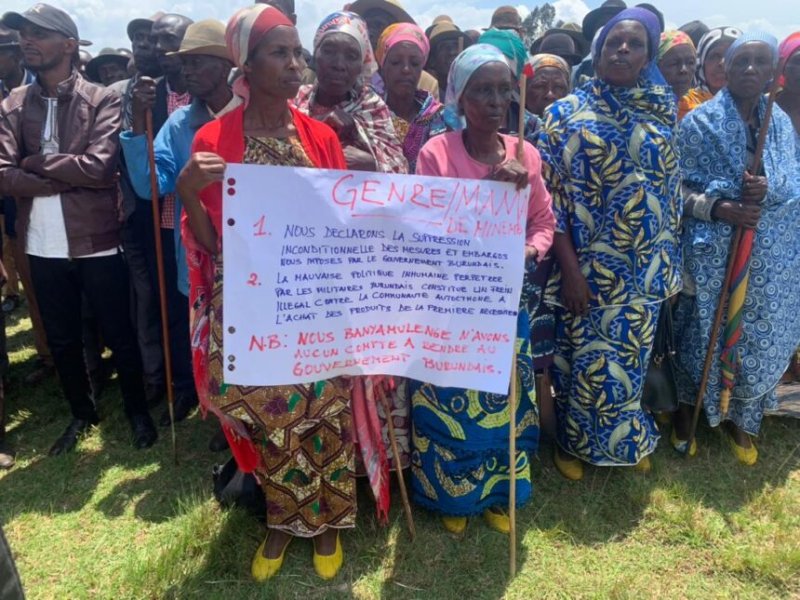 GENRE/MANI
DE MINEMB
1. NOUS DECLARONS LA SUPPRESSION
INCONDITIONNELLE DES MESURES ET EMBARGOS
NOUS IMPOSES PAR LE GOUVERNEMENT BURUNDAIS.
2. LA MAUVAISE POLITIQUE INHUMAINE PERPETREE
PAR LES MILITAIRES BURUNDAIS CONSTITUE UN FREIN
ILLEGAL CONTRE LA COMMUNAUTE AUTOCTHONE A
L'ACHAT DES PRODUITS DE LA PREMIERE NECESSITE
N.B: NOUS BANYAMULENGE N'AVONS
AUCUN COMTTE A RENDRE AU
GOUVERNEMENT BURUNDAIS.